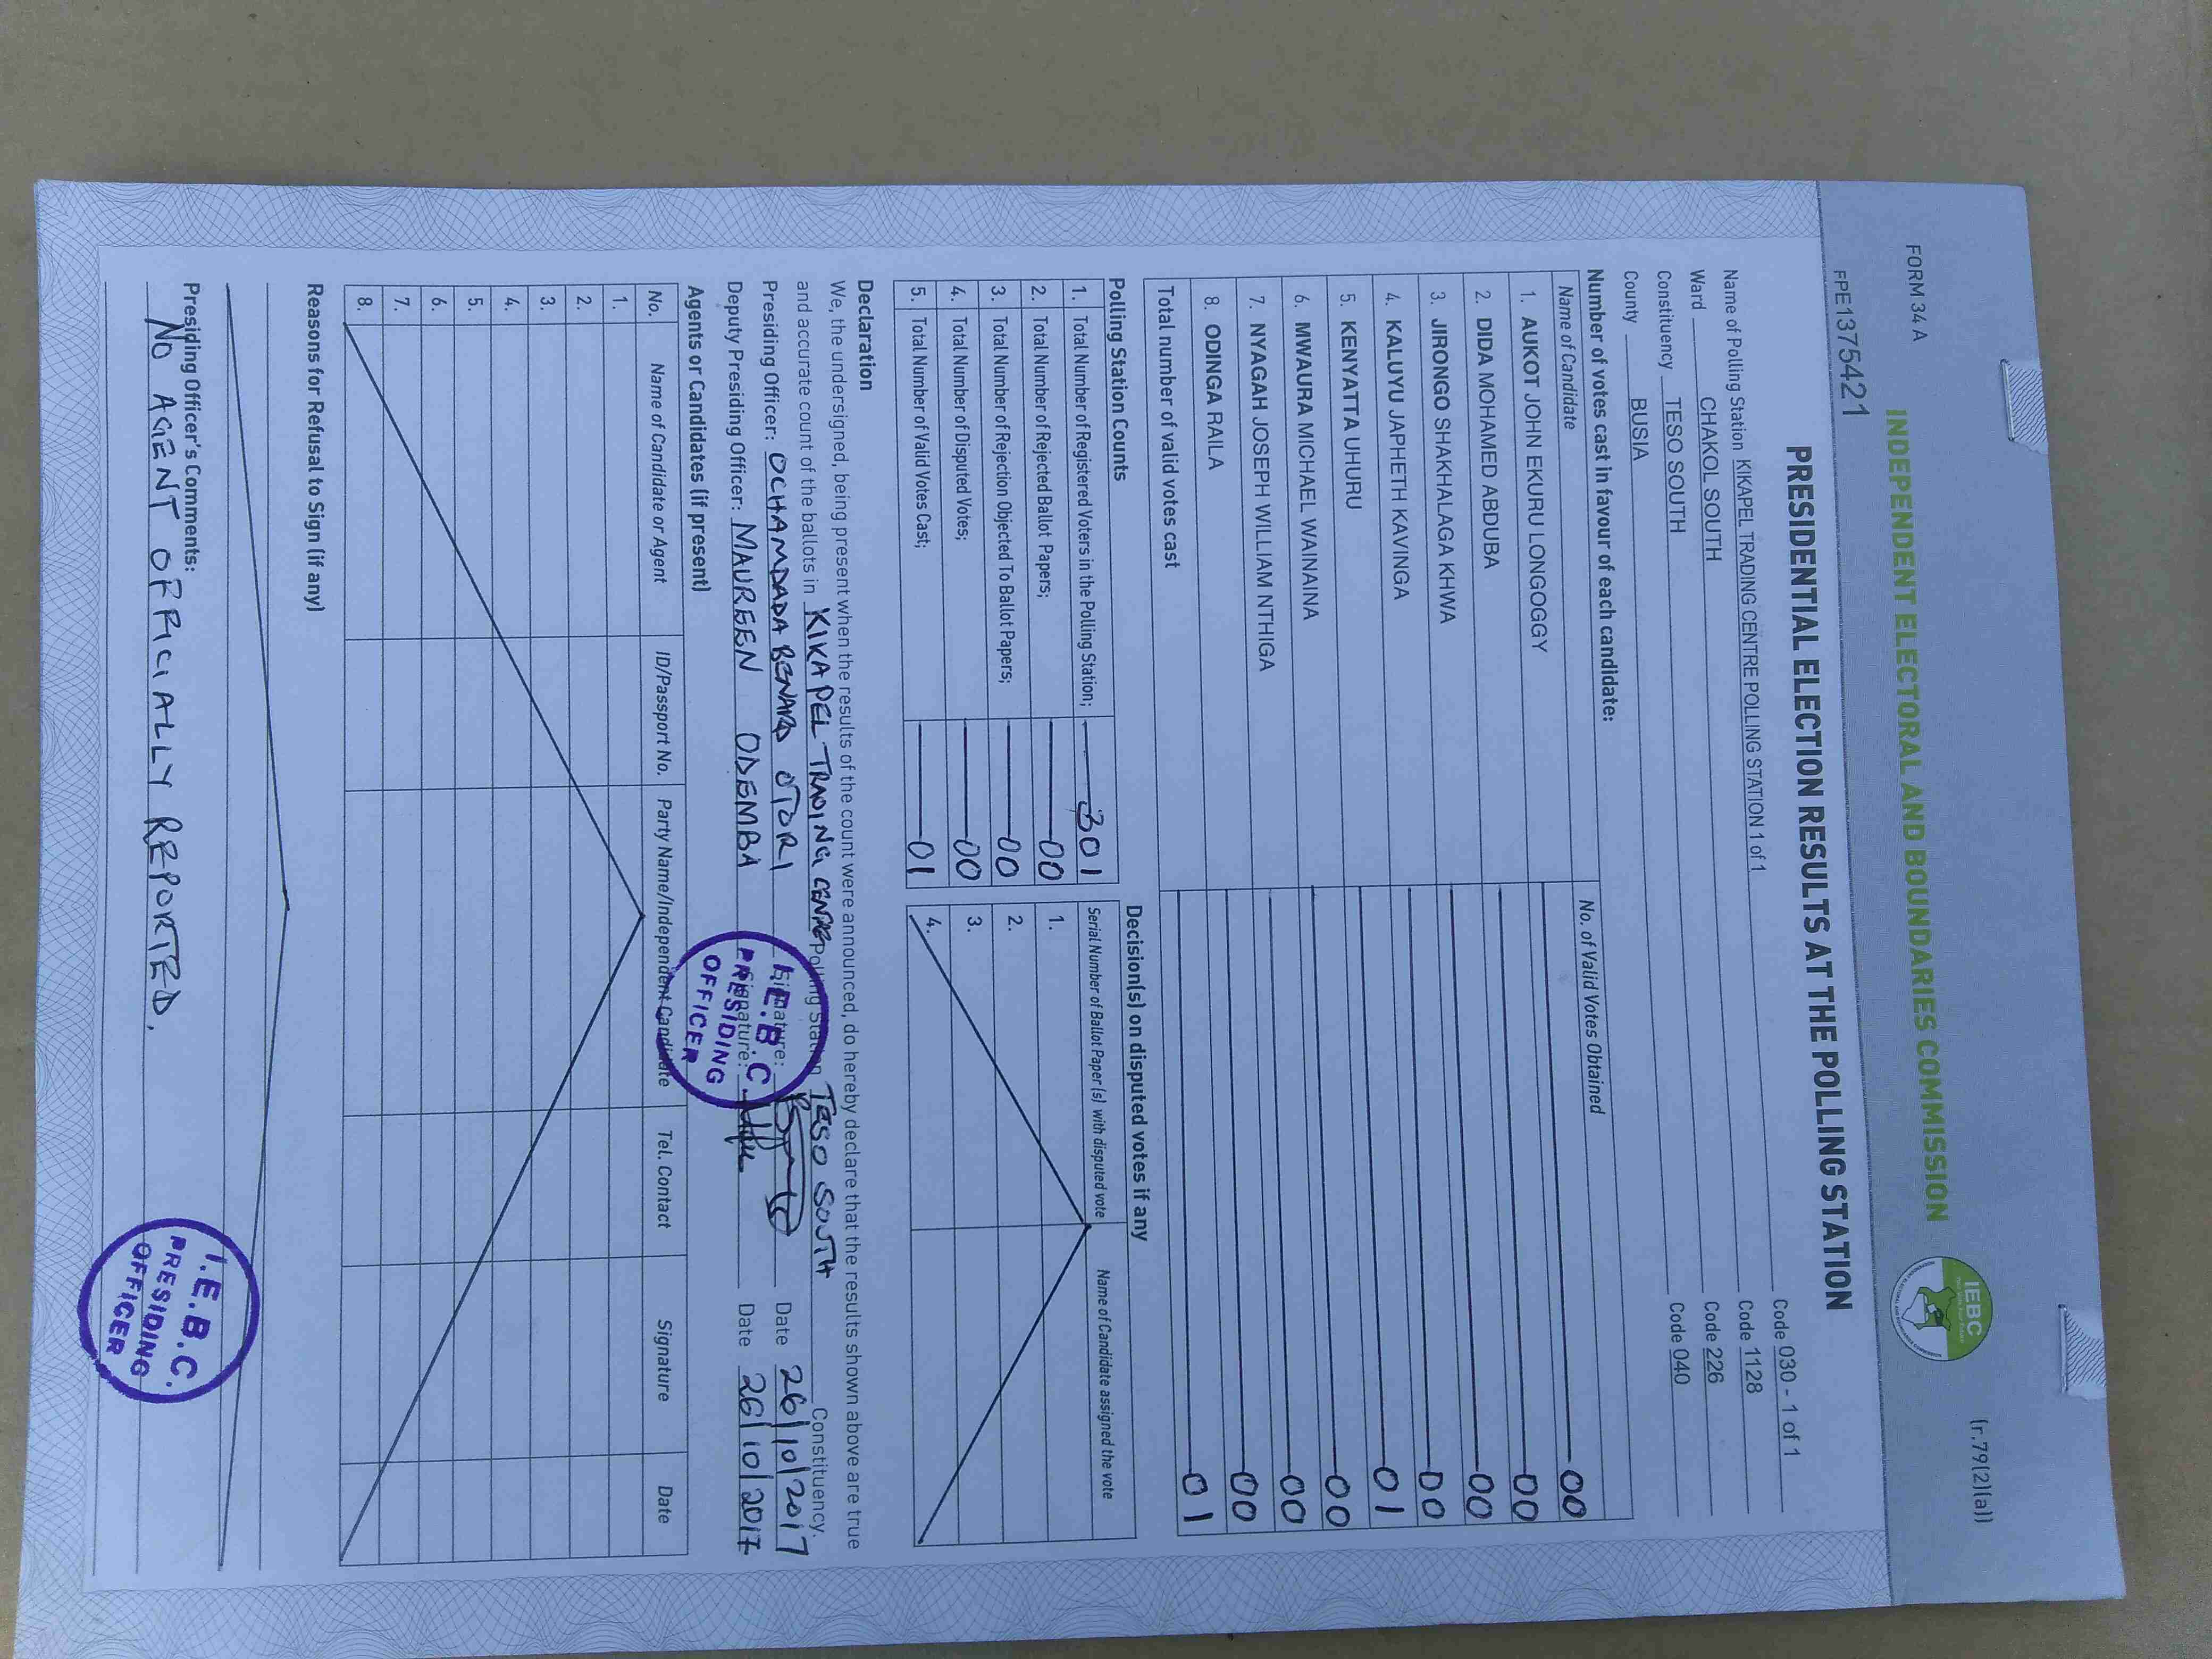 FORM 34 A
(r.79(2)(a))
INDEPENDENT ELECTORAL AND BOUNDARIES COMMISSION
IEBC
FPE1375421
PRESIDENTIAL ELECTION RESULTS AT THE POLLING STATION
Name of Polling Station KIKAPEL TRADING CENTRE POLLING STATION 1 of 1 Code 030 - 1 of 1
Ward CHAKOL SOUTH Code 1128
Constituency TESO SOUTH Code 226
County BUSIA Code 040
Number of votes cast in favour of each candidate:
Name of Candidate No. of Valid Votes Obtained
1. AUKOT JOHN EKURU LONGOGGY 00
2. DIDA MOHAMED ABDUBA 00
3. JIRONGO SHAKHALAGA KHWA 00
4. KALUYU JAPHETH KAVINGA 00
5. KENYATTA UHURU 01
6. MWAURA MICHAEL WAINAINA 00
7. NYAGAH JOSEPH WILLIAM NTHIGA 00
8. ODINGA RAILA 00
Total number of valid votes cast 01
Polling Station Counts
1. Total Number of Registered Voters in the Polling Station; 301
2. Total Number of Rejected Ballot Papers; 00
3. Total Number of Rejection Objected To Ballot Papers; 00
4. Total Number of Disputed Votes; 00
5. Total Number of Valid Votes Cast; 01
Decision(s) on disputed votes if any
Serial Number of Ballot Paper (s) with disputed vote Name of Candidate assigned the vote
1.
2.
3.
4.
Declaration
We, the undersigned, being present when the results of the count were announced, do hereby declare that the results shown above are true
and accurate count of the ballots in KIKAPEL TRADING CENTRE Polling Station TESO SOUTH Constituency.
Presiding Officer: OCHAMDADA BENARD OTORI Signature: Date 26/10/2017
Deputy Presiding Officer: MAUREEN ODEMBA Signature: Date 26/10/2017
I.E.B.C.
PRESIDING
OFFICER
Agents or Candidates (if present)
No. Name of Candidate or Agent ID/Passport No. Party Name/Independent Candidate Tel. Contact Signature Date
1.
2.
3.
4.
5.
6.
7.
8.
Reasons for Refusal to Sign (if any)
Presiding Officer's Comments:
NO AGENT OFFICIALLY REPORTED.
I.E.B.C.
PRESIDING
OFFICER